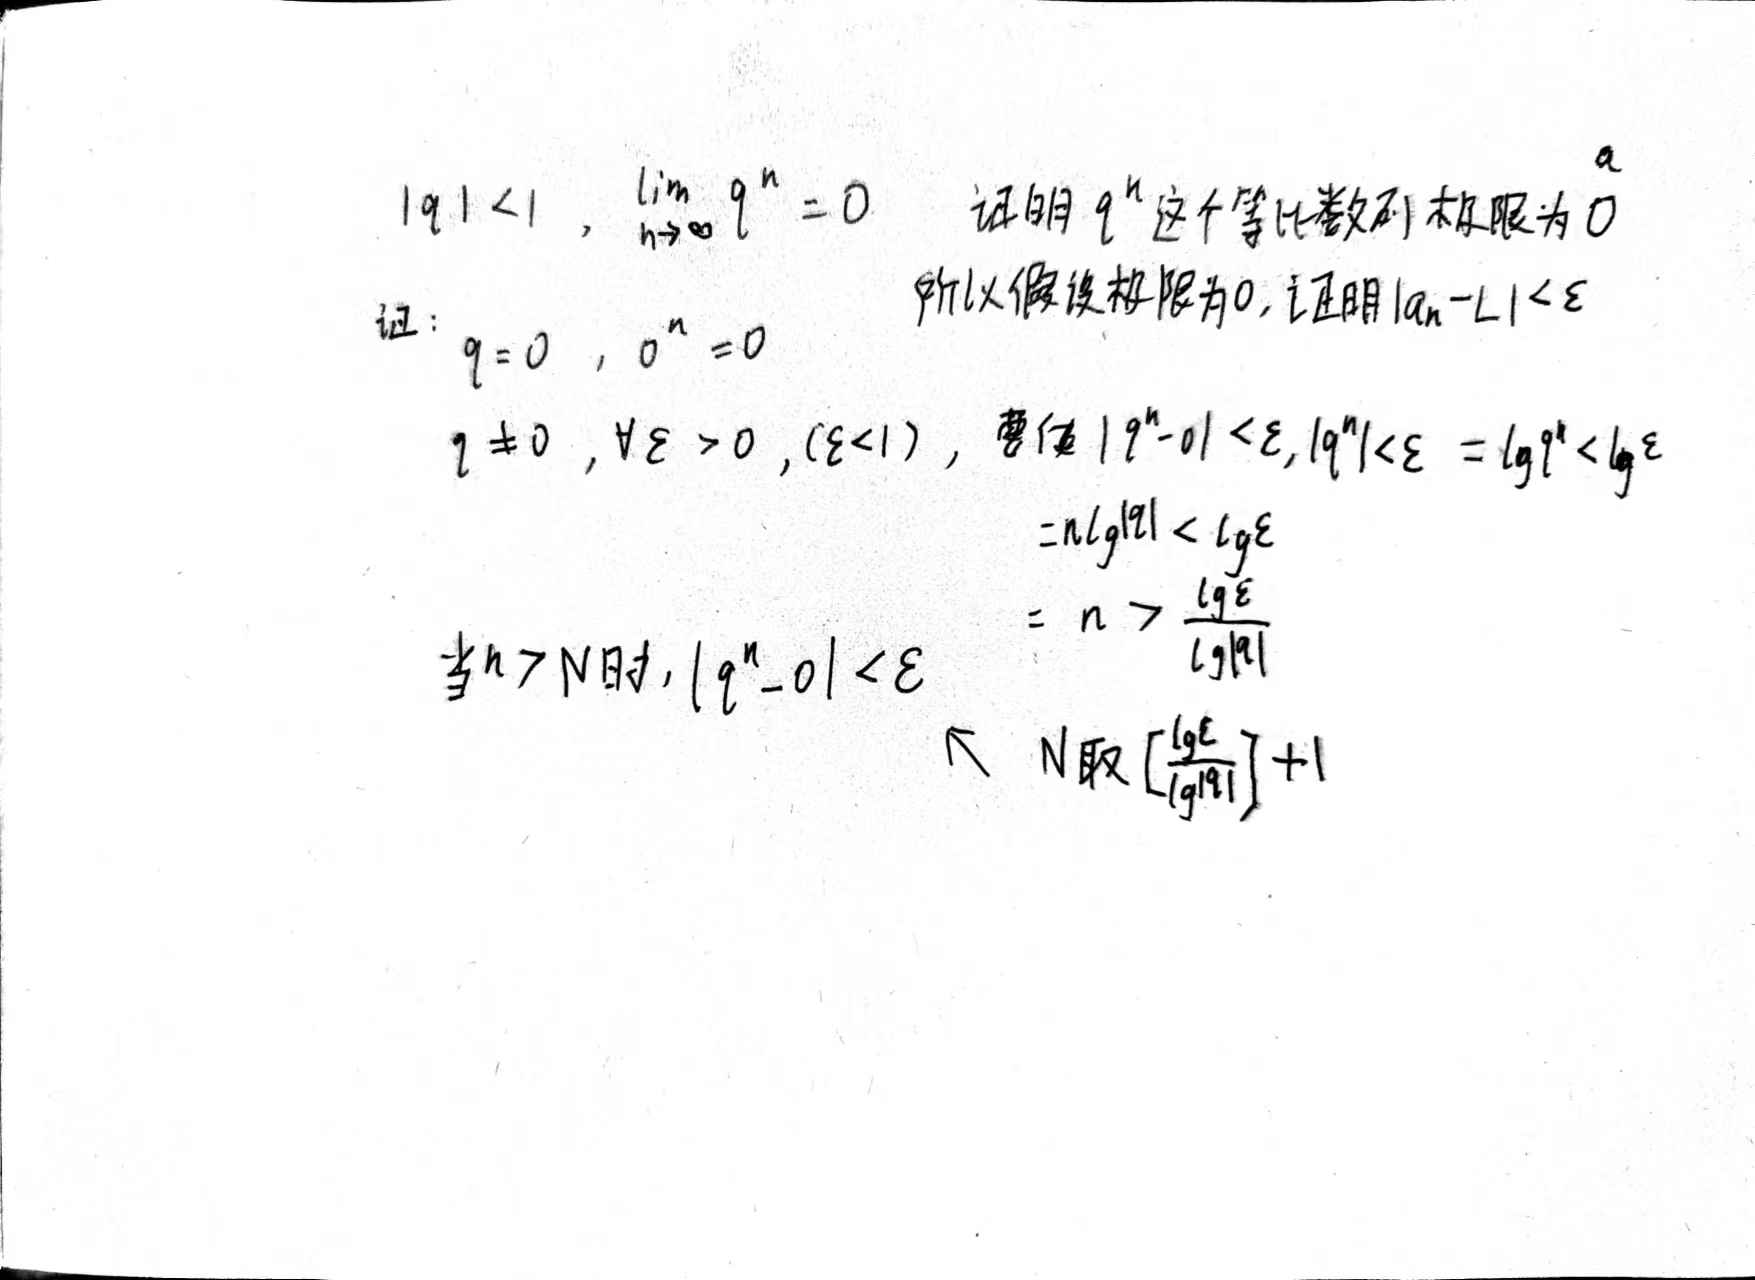 |q|<1, lim n→∞ qⁿ = 0 证明qⁿ这个等比数列极限为0 a
所以假设极限为0,证明|aₙ-L|<ε
证:
q=0, 0ⁿ=0
q≠0, ∀ε>0,(ε<1), 要使|qⁿ-0|<ε,|qⁿ|<ε = lgqⁿ<lgε
=nlg|q|<lgε
= n > lgε/lg|q|
当n>N时,|qⁿ-0|<ε
↖ N取[lgε/lg|q|]+1